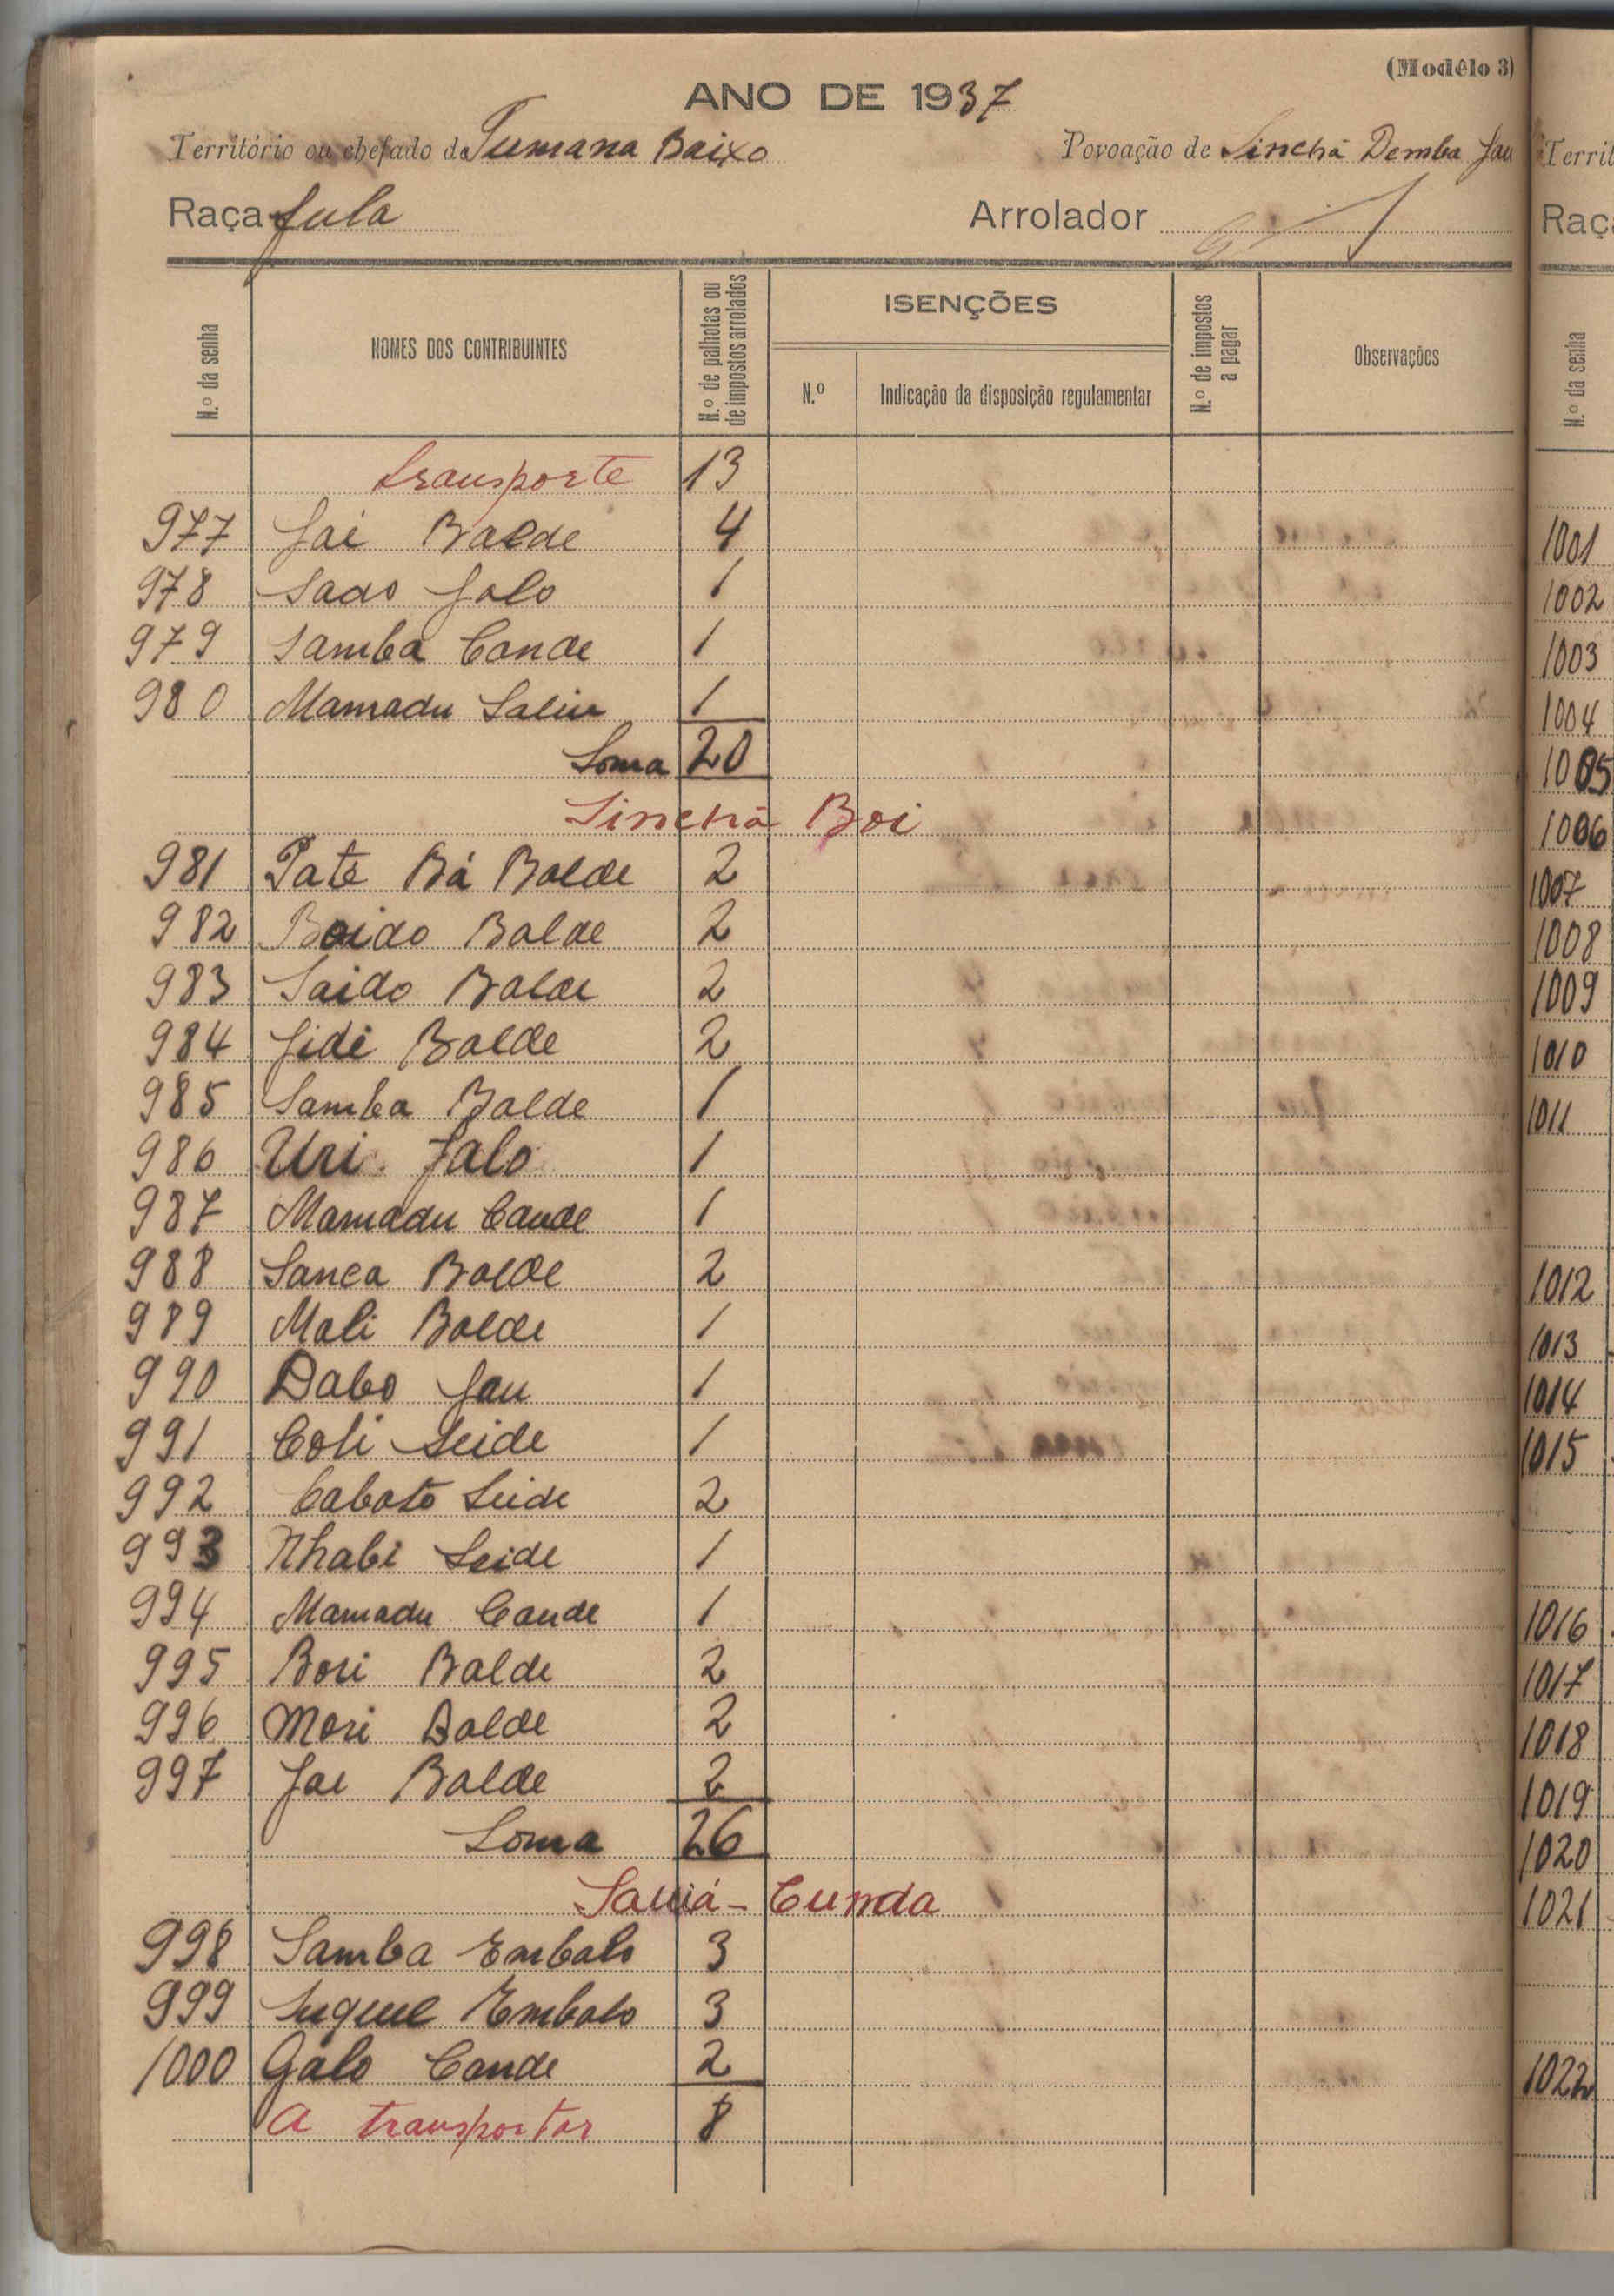 (Modêlo 3)
ANO DE 1937
Território ou chefado de Tumana Baixo Povoação de Sinchã Demba Jau
Raça fula Arrolador
N.º da senha NOMES DOS CONTRIBUINTES N.º de palhotas ou de impostos arrolados ISENÇÕES N.º Indicação da disposição regulamentar N.º de impostos a pagar Observações
transporte 13
977 Jai Balde 4
978 Sado Jalo 1
979 Samba Cande 1
980 Mamadu Saliu 1
Soma 20
Sinchã Boi
981 Pate Bá Balde 2
982 Boido Balde 2
983 Saido Balde 2
984 Jidi Balde 2
985 Samba Balde 1
986 Uri Jalo 1
987 Mamadu Cande 1
988 Sanca Balde 2
989 Mali Balde 1
990 Dabo Jau 1
991 Coli Seide 1
992 Cabato Seide 2
993 Nhabi Seide 1
994 Mamadu Cande 1
995 Bori Balde 2
996 Mori Balde 2
997 Jae Balde 2
Soma 26
Cunda
998 Samba Embalo 3
999 Suquel Embalo 3
1000 Galo Cande 2
A transportar 8
Territ
Raç
N.º da senha
1001
1002
1003
1004
1005
1006
1007
1008
1009
1010
1011
1012
1013
1014
1015
1016
1017
1018
1019
1020
1021
1022